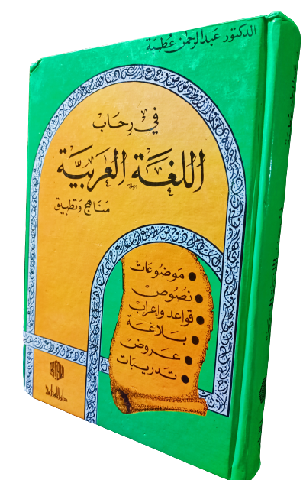 الدكتور عبدالرحمن عطبة
في رحاب
اللغة العربية
مناهج وتطبيق
موضوعات
نصوص
قواعد واعراب
بلاغة
عروض
تدريبات